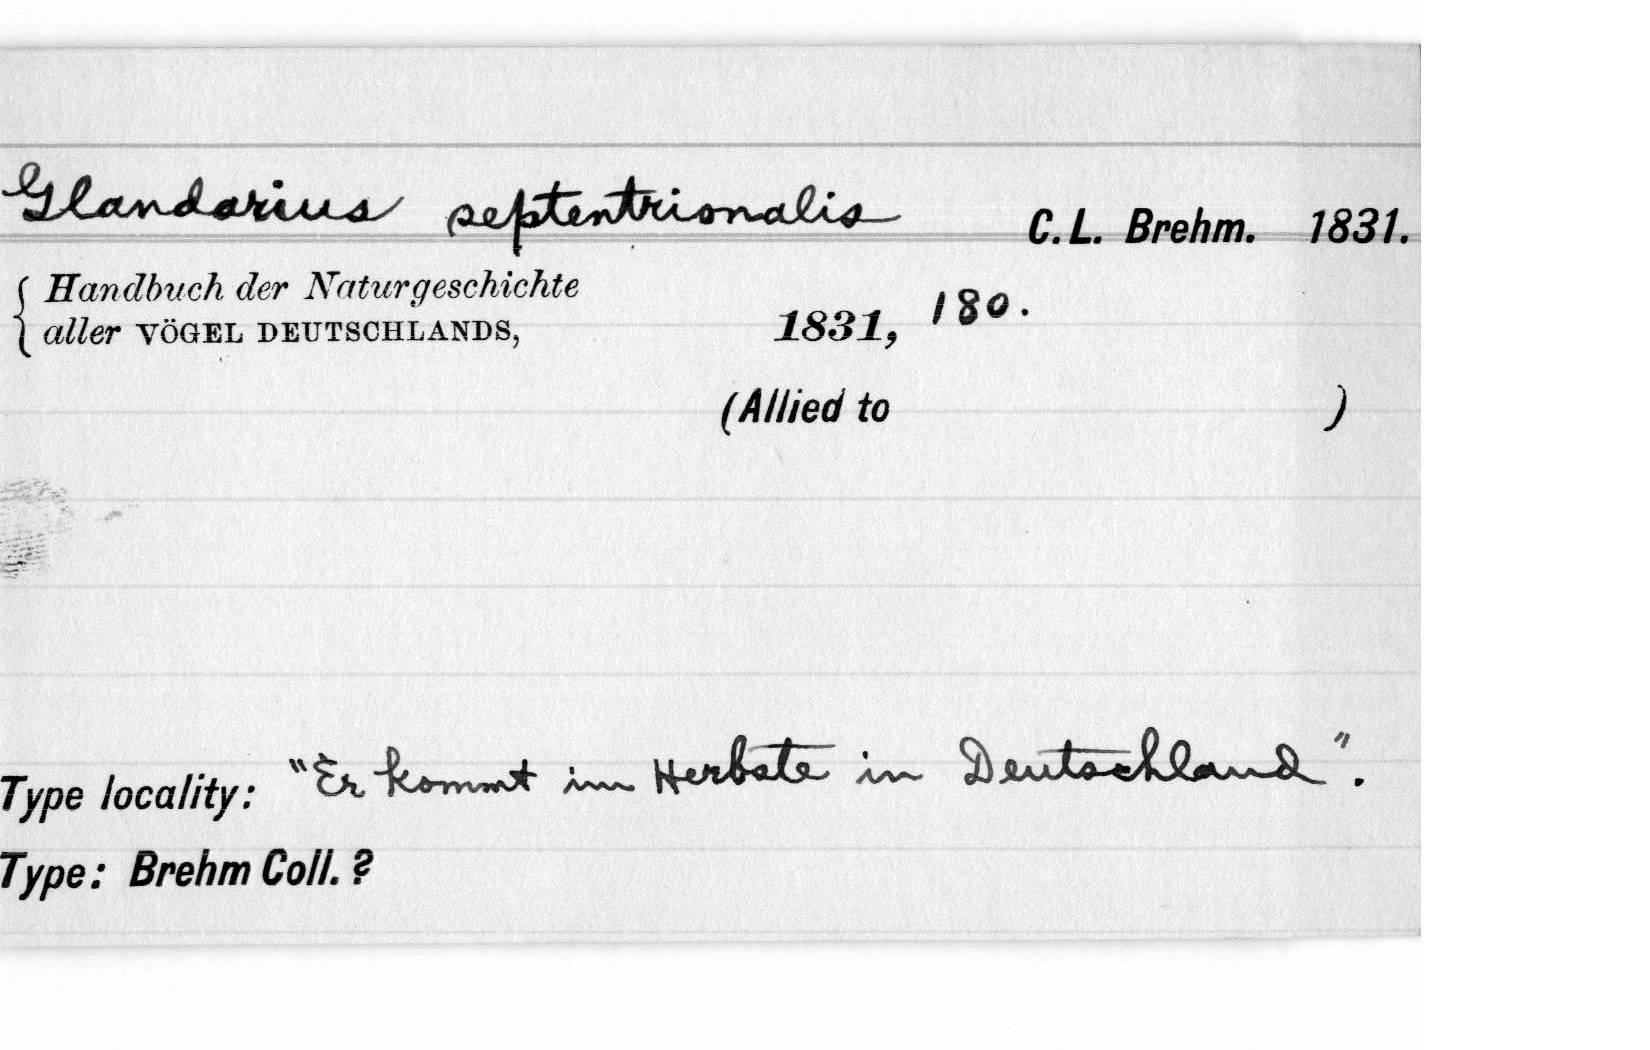 Glandarius septentrionalis C. L. Brehm. 1831.
Handbuch der Naturgeschichte
aller VÖGEL DEUTSCHLANDS, 1831, 180.
(Allied to )
Type locality: "Er kommt im Herbste in Deutschland".
Type: Brehm Coll. ?